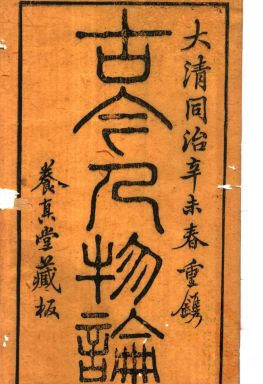 大清同治辛未春重鐫
古今人物論
養真堂藏板